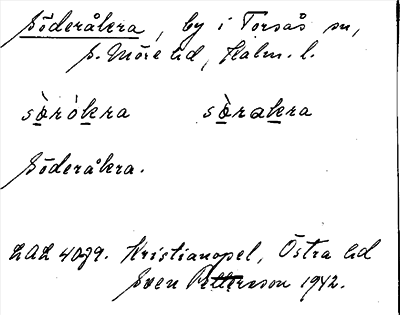 Söderåkra, by i Torsås sn,
S. Möre hd, Kalm. l.
sòrókra sòrakra
Söderåkra.
LAL 4079. Kristianopel, Östra hd
Sven Petterson 1942.